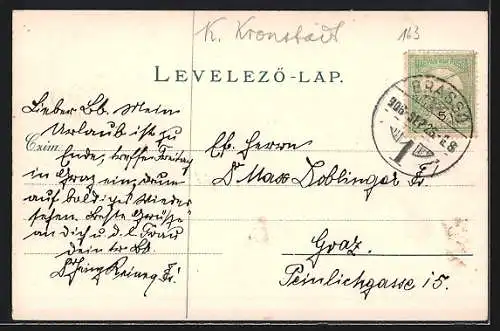 K. Kronstadt
163
LEVELEZŐ-LAP.
BRASSÓ
Czim:
Lieber Bb. Mein
Urlaub ist zu
Ende, treffe Freitag
in Graz ein, drum
auf baldiges Wieder
sehen. Beste Grüsse
an dich u. d. l. Frau
dein tr. Bb.
Herrn
Dr Max Doblinger
Graz.
Peinlichgasse 15.